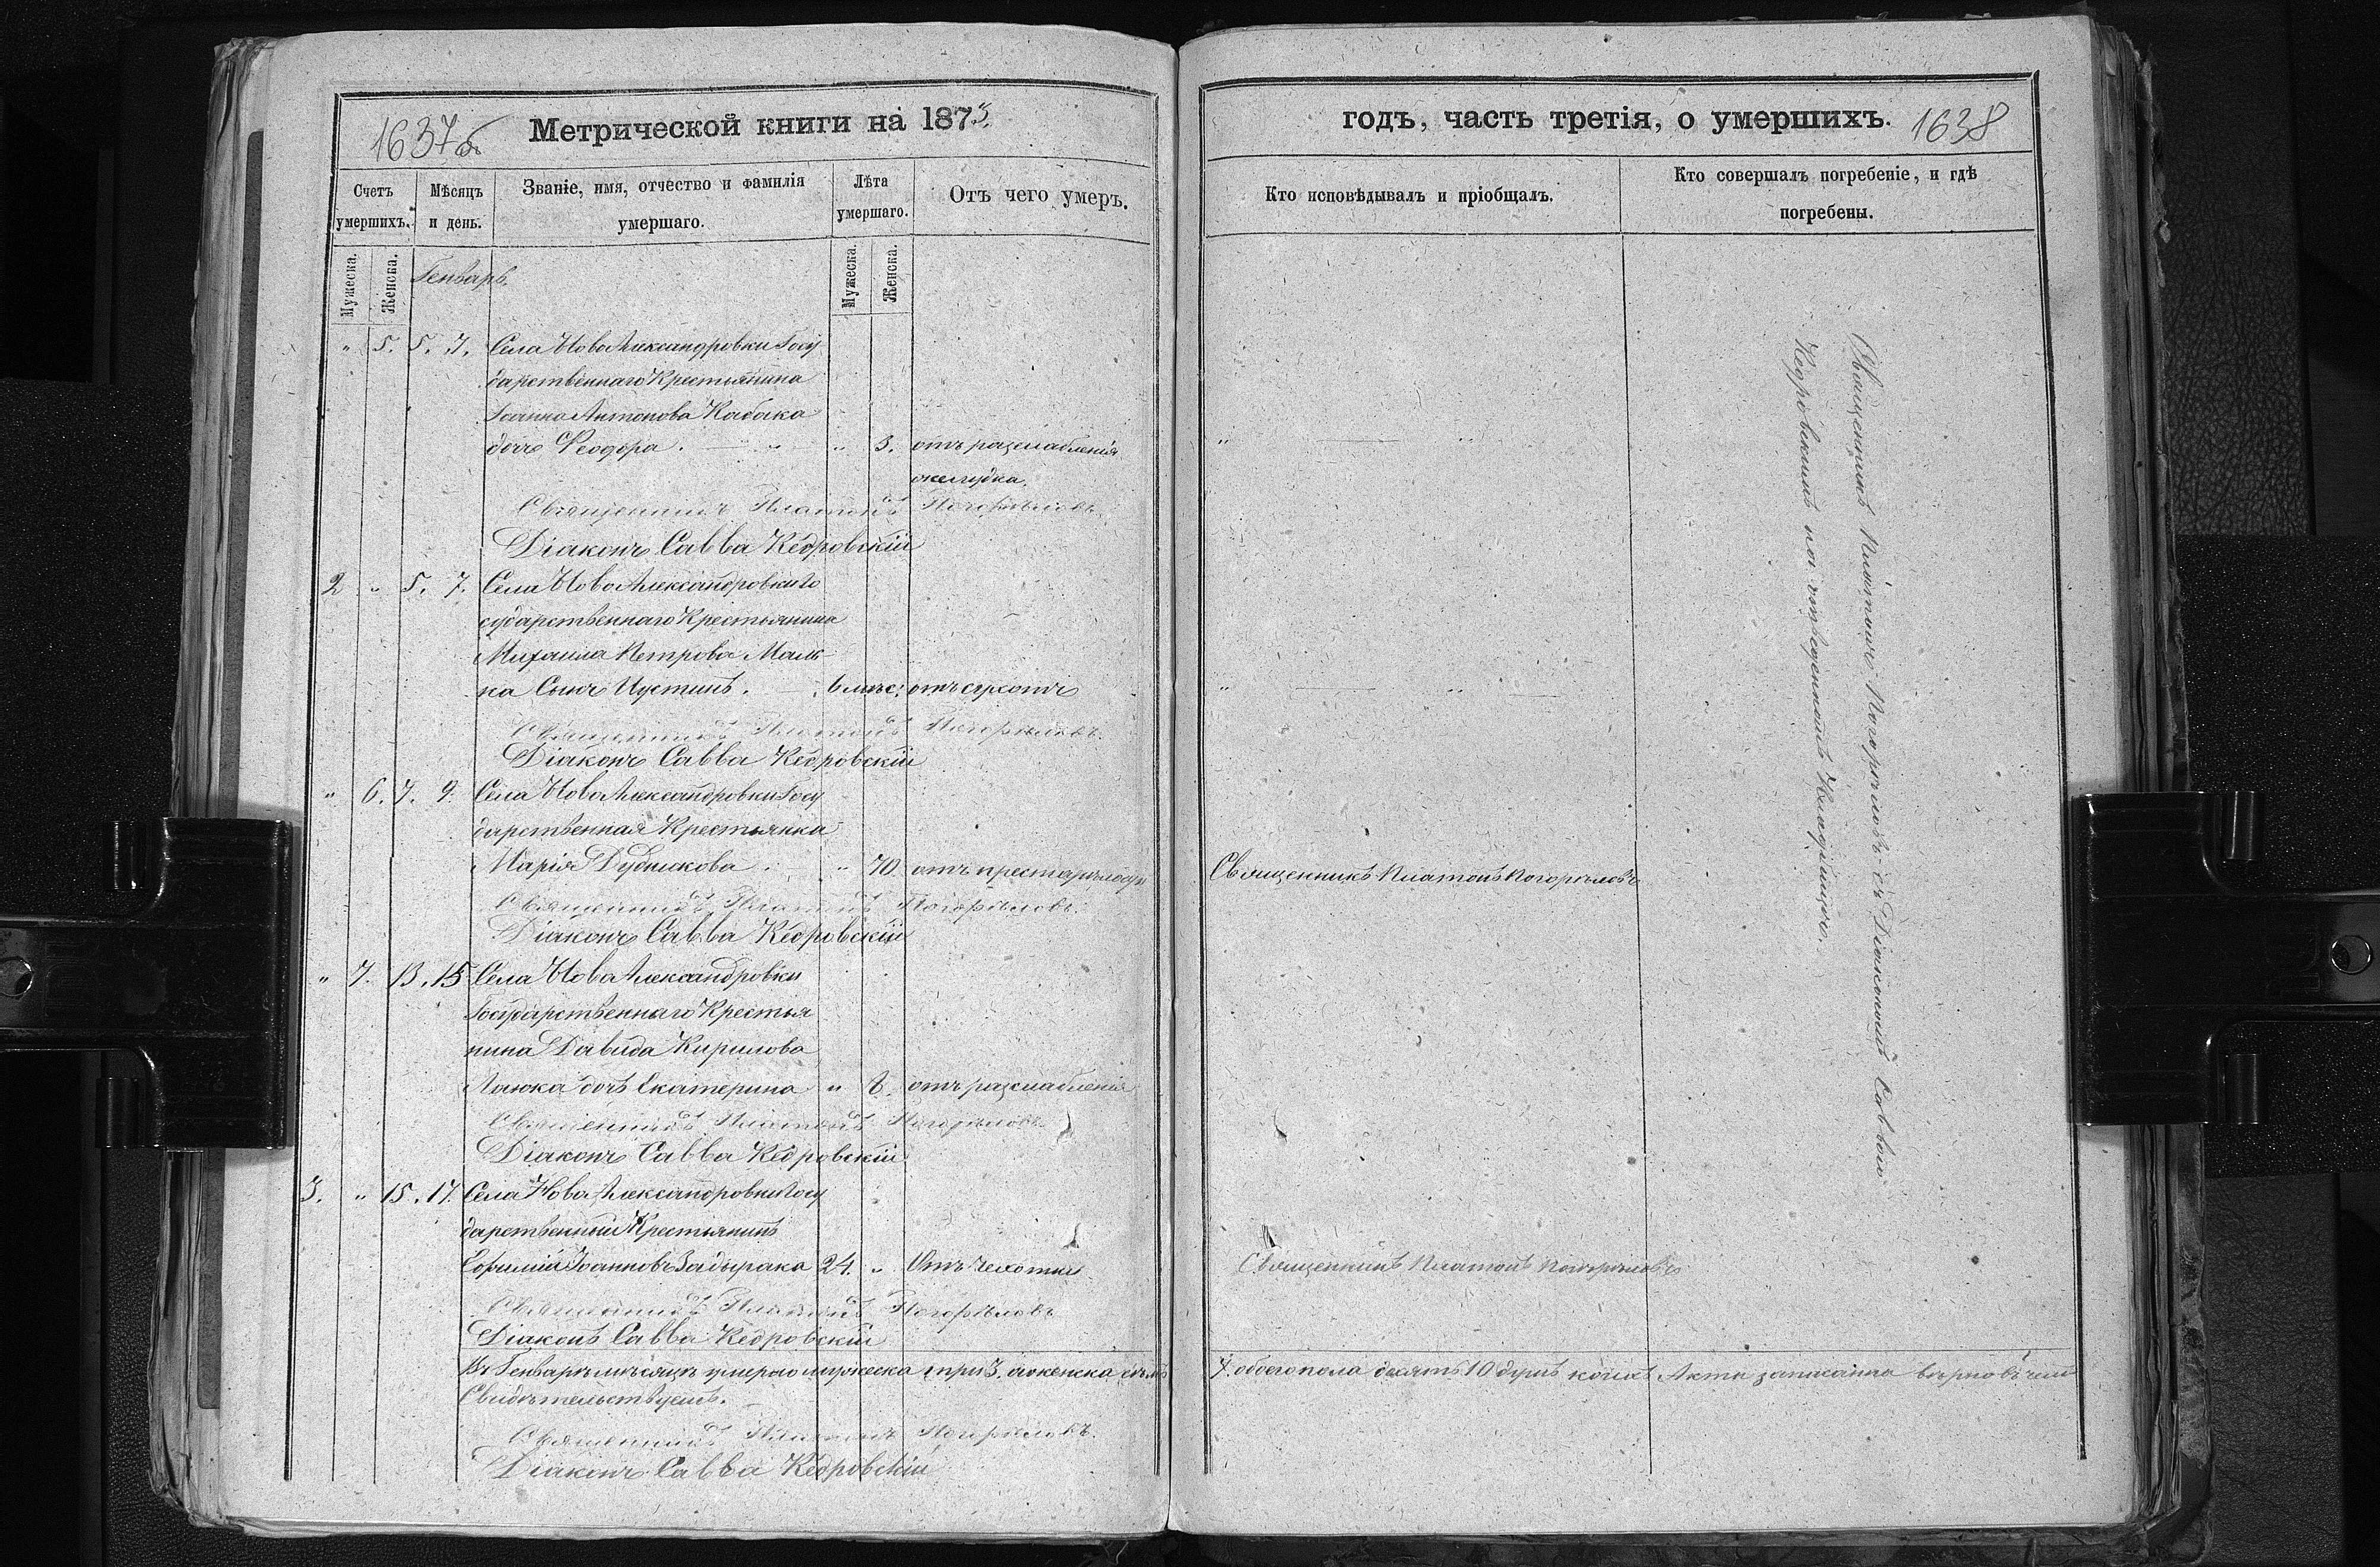 1637 об
Метрической книги на 1873.
Счетъ умершихъ.
Мѣсяцъ и день.
Званіе, имя, отчество и фамилія умершаго.
Лѣта умершаго.
Отъ чего умеръ.
Мужеска.
Женска.
Мужеска.
Женска.
Генварь.
" 5. 5. 7. Села НовоАлександровки Госу
дарственнаго Крестьянина
Іоанна Антонова Кабака
дочь Феодора. " " 3. отъ разслабленія
желудка.
Священникъ Платонъ Погорѣловъ
Діаконъ Савва Кедровскій
2 " 5. 7. Села НовоАлександровки Го
сударственнаго Крестьянина
Михаила Петрова
на Сынъ Иустинъ. 6 мѣс: отъ сухотъ
Священникъ Платонъ Погорѣловъ.
Діаконъ Савва Кедровскій
" 6. 7. 9. Села НовоАлександровки Госу
дарственная Крестьянка
Марія . " 70 отъ престарѣлости
Священникъ Платонъ Погорѣловъ.
Діаконъ Савва Кедровскій
" 7. 13. 15 Села НовоАлександровки
Государственнаго Крестья
нина Давида Кирилова
дочь Екатерина " отъ разслабленія
Священникъ Платонъ Погорѣловъ
Діаконъ Савва Кедровскій
3. " 15. 17. Села НовоАлександровки Госу
дарственный Крестьянинъ
Ефимій Іоанновъ Задырака 24. " Отъ чехотки
Священникъ Платонъ Погорѣловъ
Діаконъ Савва Кедровскій
Въ Генварѣ мѣсяцѣ умерло мужеска три 3. а женска семь
Свидѣтельствуемъ.
Священникъ Платонъ Погорѣловъ.
Діаконъ Савва Кедровскій
годъ, часть третія, о умершихъ.
1638
Кто исповѣдывалъ и пріобщалъ.
Кто совершалъ погребеніе, и гдѣ погребены.
" "
" "
Священникъ Платонъ Погорѣловъ
Священникъ Платонъ Погорѣловъ
Священникъ Платонъ Погорѣловъ съ Діакономъ Саввою
Кедровскимъ на отведенномъ Кладбищѣ.
7. обоего пола десять 10 душъ коихъ Акты записаны вѣрно въ чемъ